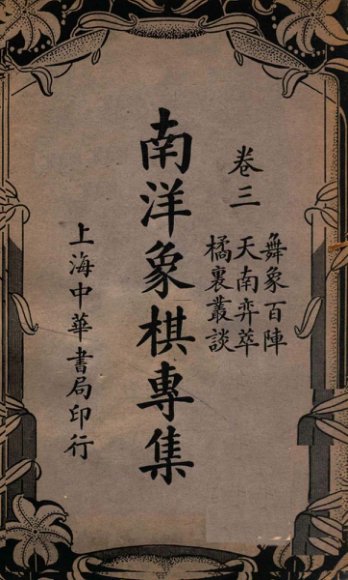 卷三
舞象百陣
天南弈萃
橘裏叢談
南洋象棋專集
上海中華書局印行